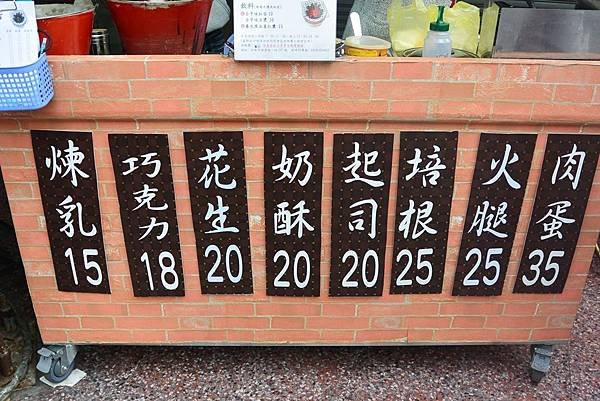 煉乳 15
巧克力 18
花生 20
奶酥 20
起司 20
培根 25
火腿 25
肉蛋 35